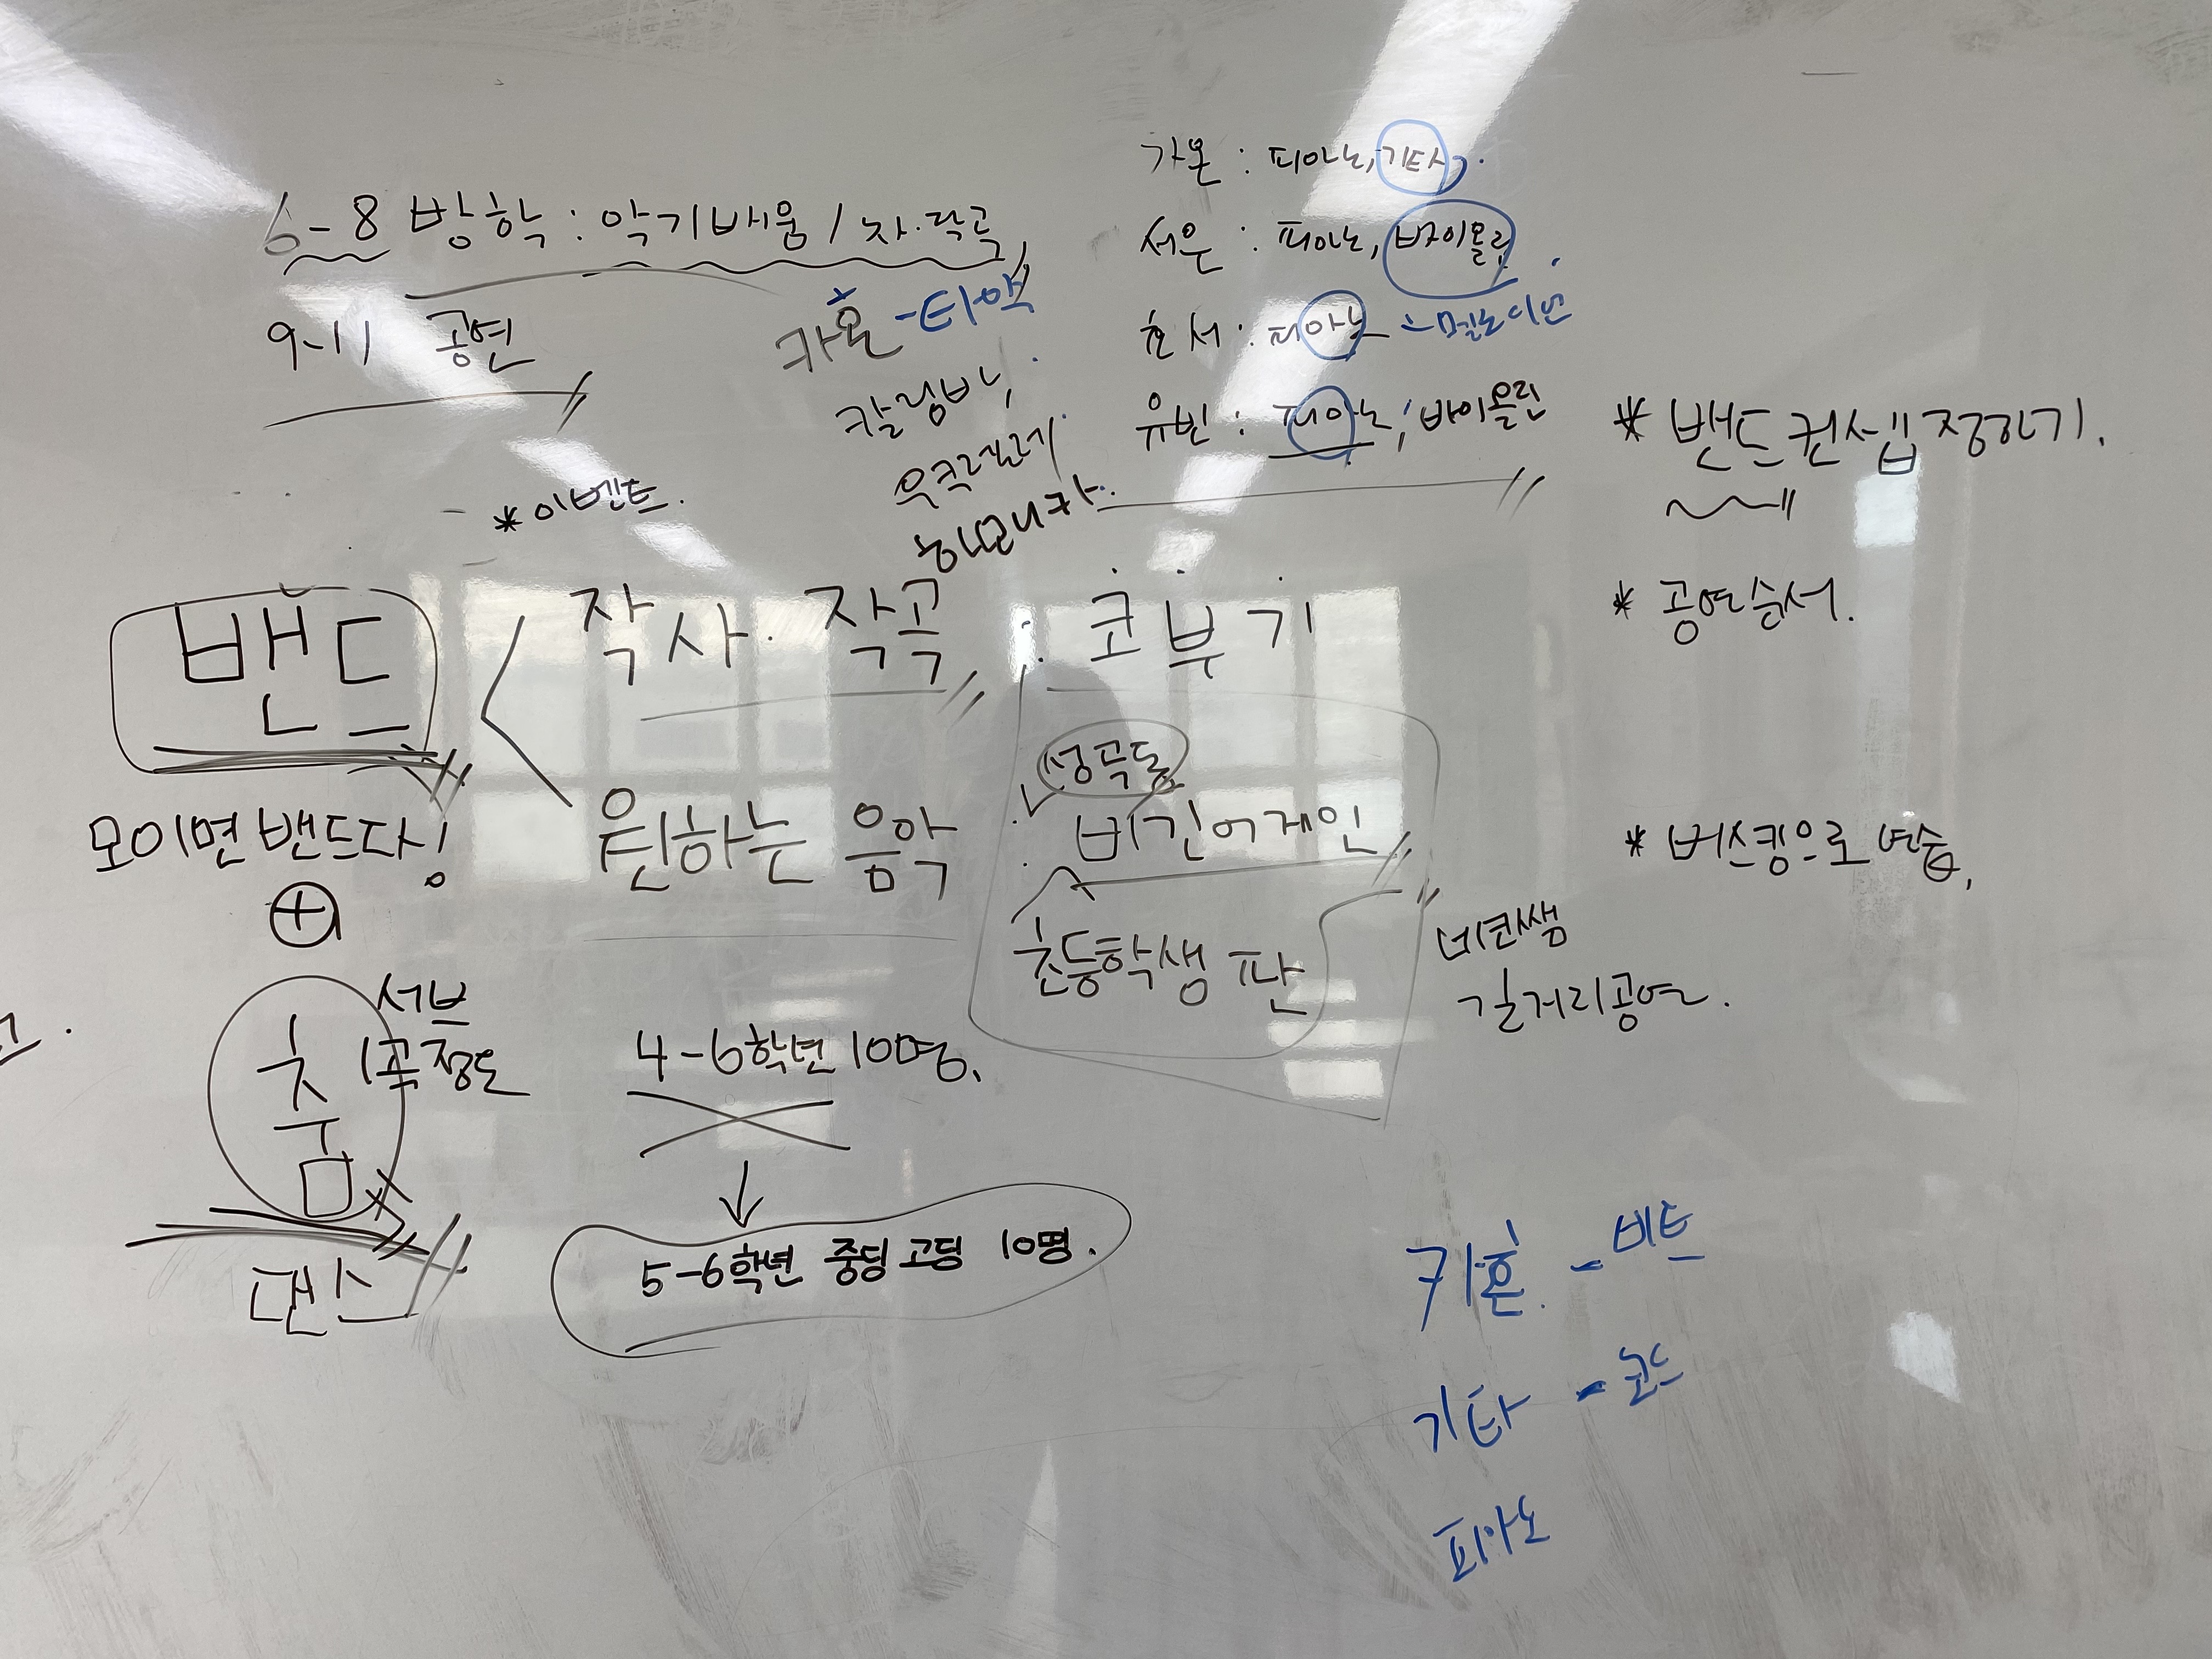 6-8 방학 : 악기배움 / 작.작곡
9-11 공연
카혼 - 타악
칼림바,
우쿨렐레
하모니카.
가온 : 피아노, 기타,
서은 : 피아노, 바이올린
효서 : 피아노 - 멜로디언
유빈 : 피아노, 바이올린
* 밴드 컨셉 정하기.
* 공연순서.
* 버스킹으로 연습,
네코쌤
길거리공연.
* 이벤트.
밴드
작사. 작곡
코부기
원하는 음악
성곡동
비긴어게인
초등학생 판
모이면 밴드다!
+
춤
서브
1곡 정도
댄스
4-6학년 10명.
5-6학년 중딩 고딩 10명.
카혼 - 비트
기타 - 코드
피아노